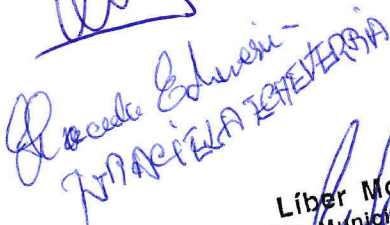 Graciela Echeverri-
GRACIELA ECHEVERRIA
Líber Mo
Munici